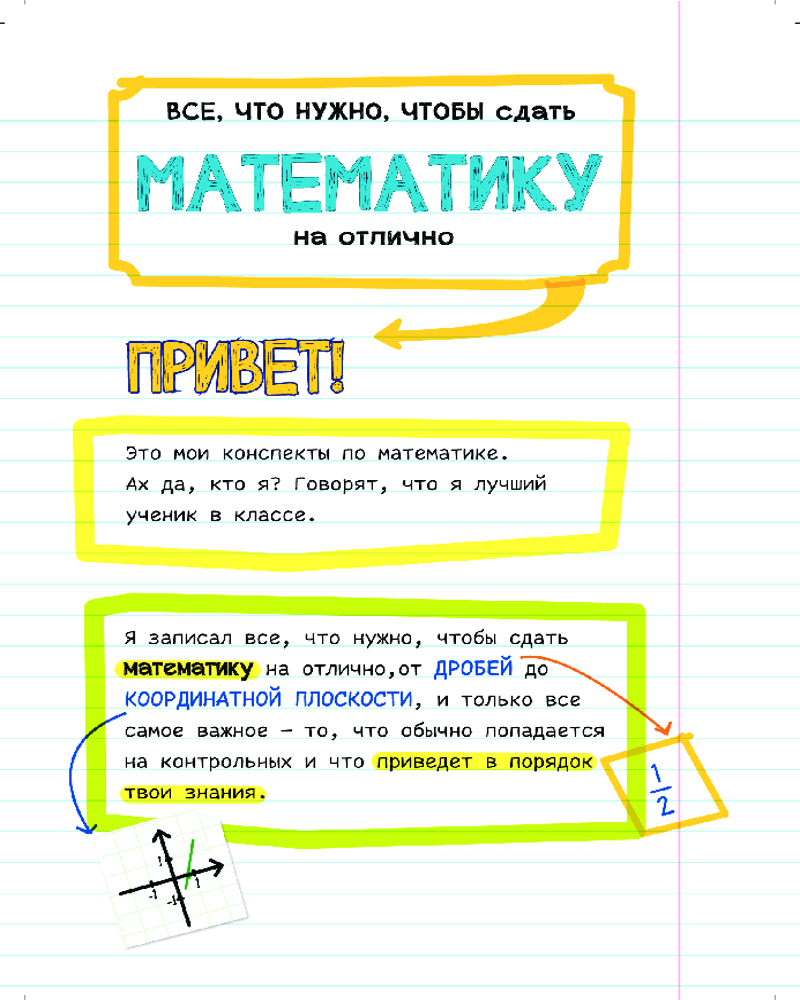 ВСЕ, ЧТО НУЖНО, ЧТОБЫ сдать
МАТЕМАТИКУ
на отлично
ПРИВЕТ!
Это мои конспекты по математике.
Ах да, кто я? Говорят, что я лучший
ученик в классе.
Я записал все, что нужно, чтобы сдать
математику на отлично,от ДРОБЕЙ до
КООРДИНАТНОЙ ПЛОСКОСТИ, и только все
самое важное – то, что обычно попадается
на контрольных и что приведет в порядок
твои знания.
1
2
1
1
-1
-1